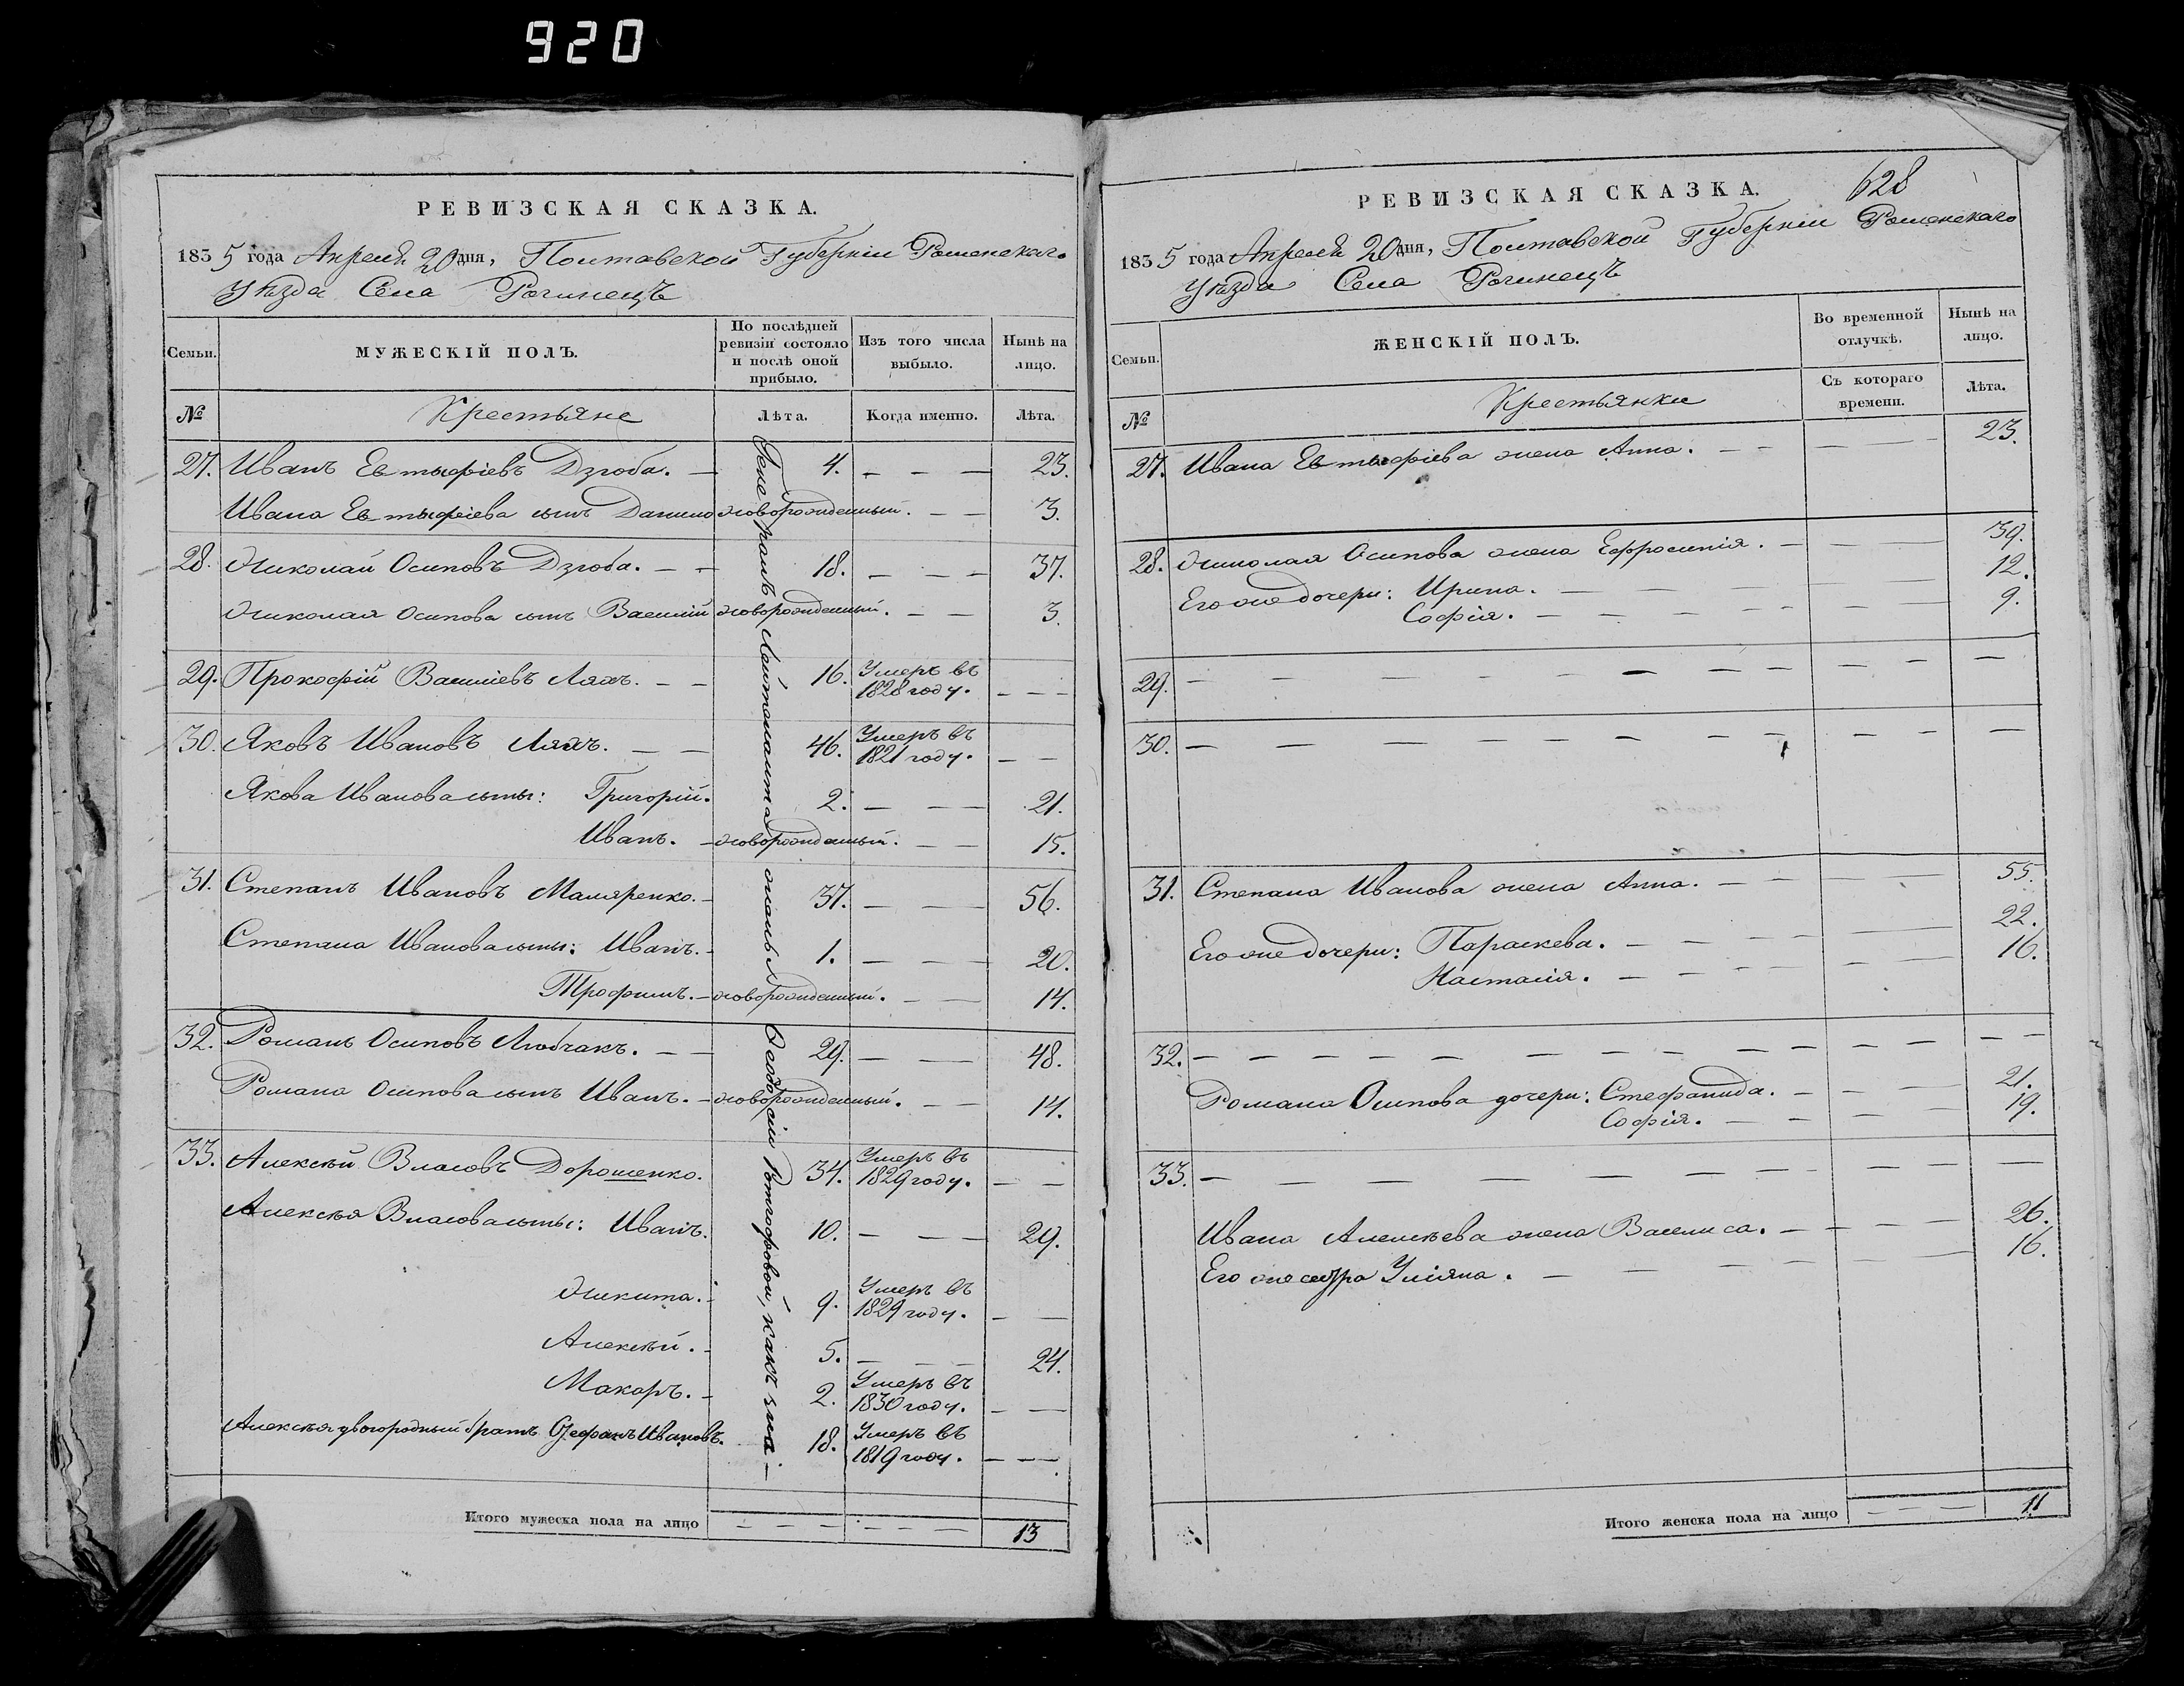 920
РЕВИЗСКАЯ СКАЗКА.
1835 года Апреля 20 дня, Полтавской Губернiи Роменскаго
Уѣзда Села Рогинецъ
Семьи.
МУЖЕСКІЙ ПОЛЪ.
По послѣдней ревизіи состояло и послѣ оной прибыло.
Изъ того числа выбыло.
Нынѣ на лицо.
№
Крестьяне
Лѣта.
Когда именно.
Лѣта.
27. Иванъ Евтыфіевъ Дзюба. — 4. — — — 23.
Ивана Евтыфіева сынъ Данило новорожденный. — — 3.
28. Николай Осиповъ Дзюба. — — 18. — — — 37.
Николая Осипова сынъ Василий новорожденный. — — 3.
29. Прокофій Василіевъ Ляхъ. — — 16. Умеръ въ
1828 году. — — —
30. Яковъ Ивановъ Ляхъ. — — 46. Умеръ въ
1821 году. — —
Якова Ивановa сыны: Григорій. 2. — — 21.
Иванъ. — новорожденный. — — 15.
31. Степанъ Ивановъ Маляренко. — 37. — — 56.
Степана Иванова сыны: Иванъ. — 1. — — 20.
Трофимъ. — новорожденный. — — 14.
32. Романъ Осиповъ Любчакъ. — — 29. — — 48.
Романа Осипова сынъ Иванъ. — новорожденный. — — 14.
33. Алексѣй Власовъ Дорошенко. 34. Умеръ въ
1829 году. — —
Алексѣя Власова сыны: Иванъ. 10. — — 29.
Никита. — 9. Умеръ въ
1829 году. — —
Алексѣй. — 5. — — — 24.
Макаръ. — 2. Умеръ въ
1830 году. — —
Алексѣя двоюродный братъ Стефанъ Ивановъ. 18. Умеръ въ
1819 году. — — —
Генералъ Лейтенанта
Итого мужеска пола на лицо — — — — — — 13
РЕВИЗСКАЯ СКАЗКА.
628
1835 года Апреля 20 дня, Полтавской Губернiи Роменскаго
Уѣзда Села Рогинецъ
Семьи.
ЖЕНСКІЙ ПОЛЪ.
Во временной отлучкѣ.
Нынѣ на лицо.
№
Крестьянки
Съ котораго времени.
Лѣта.
27. Ивана Евтыфіева жена Анна. — — — — — 23.
28. Николая Осипова жена Ефросинія. — — — — 39.
Его же дочери: Ирина. — — — — 12.
Софія. — — — — 9.
29. — — — — — — —
30. — — — — — — —
31. Степана Иванова жена Анна. — — — — 55.
Его же дочери: Параскева. — — — — 22.
Настасія. — — — — 16.
32. — — — — — — —
Романа Осипова дочери: Стефанида. — — — 21.
Софія. — — — 19.
33. — — — — — — —
Ивана Алексѣева жена Василиса. — — — — 26.
Его же сестра Уліяна. — — — — 16.
Итого женска пола на лицо — — — 11